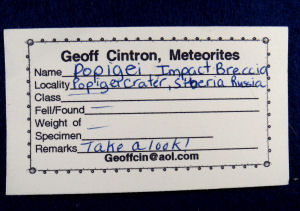 Geoff Cintron, Meteorites
Name Popigei Impact Breccia
Locality Popiger crater, Siberia Russia
Class
Fell/Found —
Weight of —
Specimen
Remarks Take a look!
Geoffcin@aol.com